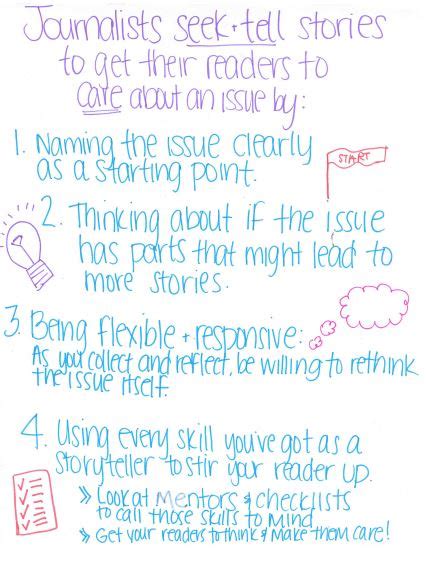 Journalists seek + tell stories
to get their readers to
care about an issue by:
1. Naming the issue clearly
as a starting point.
START
2. Thinking about if the issue
has parts that might lead to
more stories.
3. Being flexible + responsive:
As you collect and reflect, be willing to rethink
the issue itself.
4. Using every skill you've got as a
storyteller to stir your reader up.
» Look at Mentors & checklists
to call those skills to mind
» Get your readers to think & make them care!